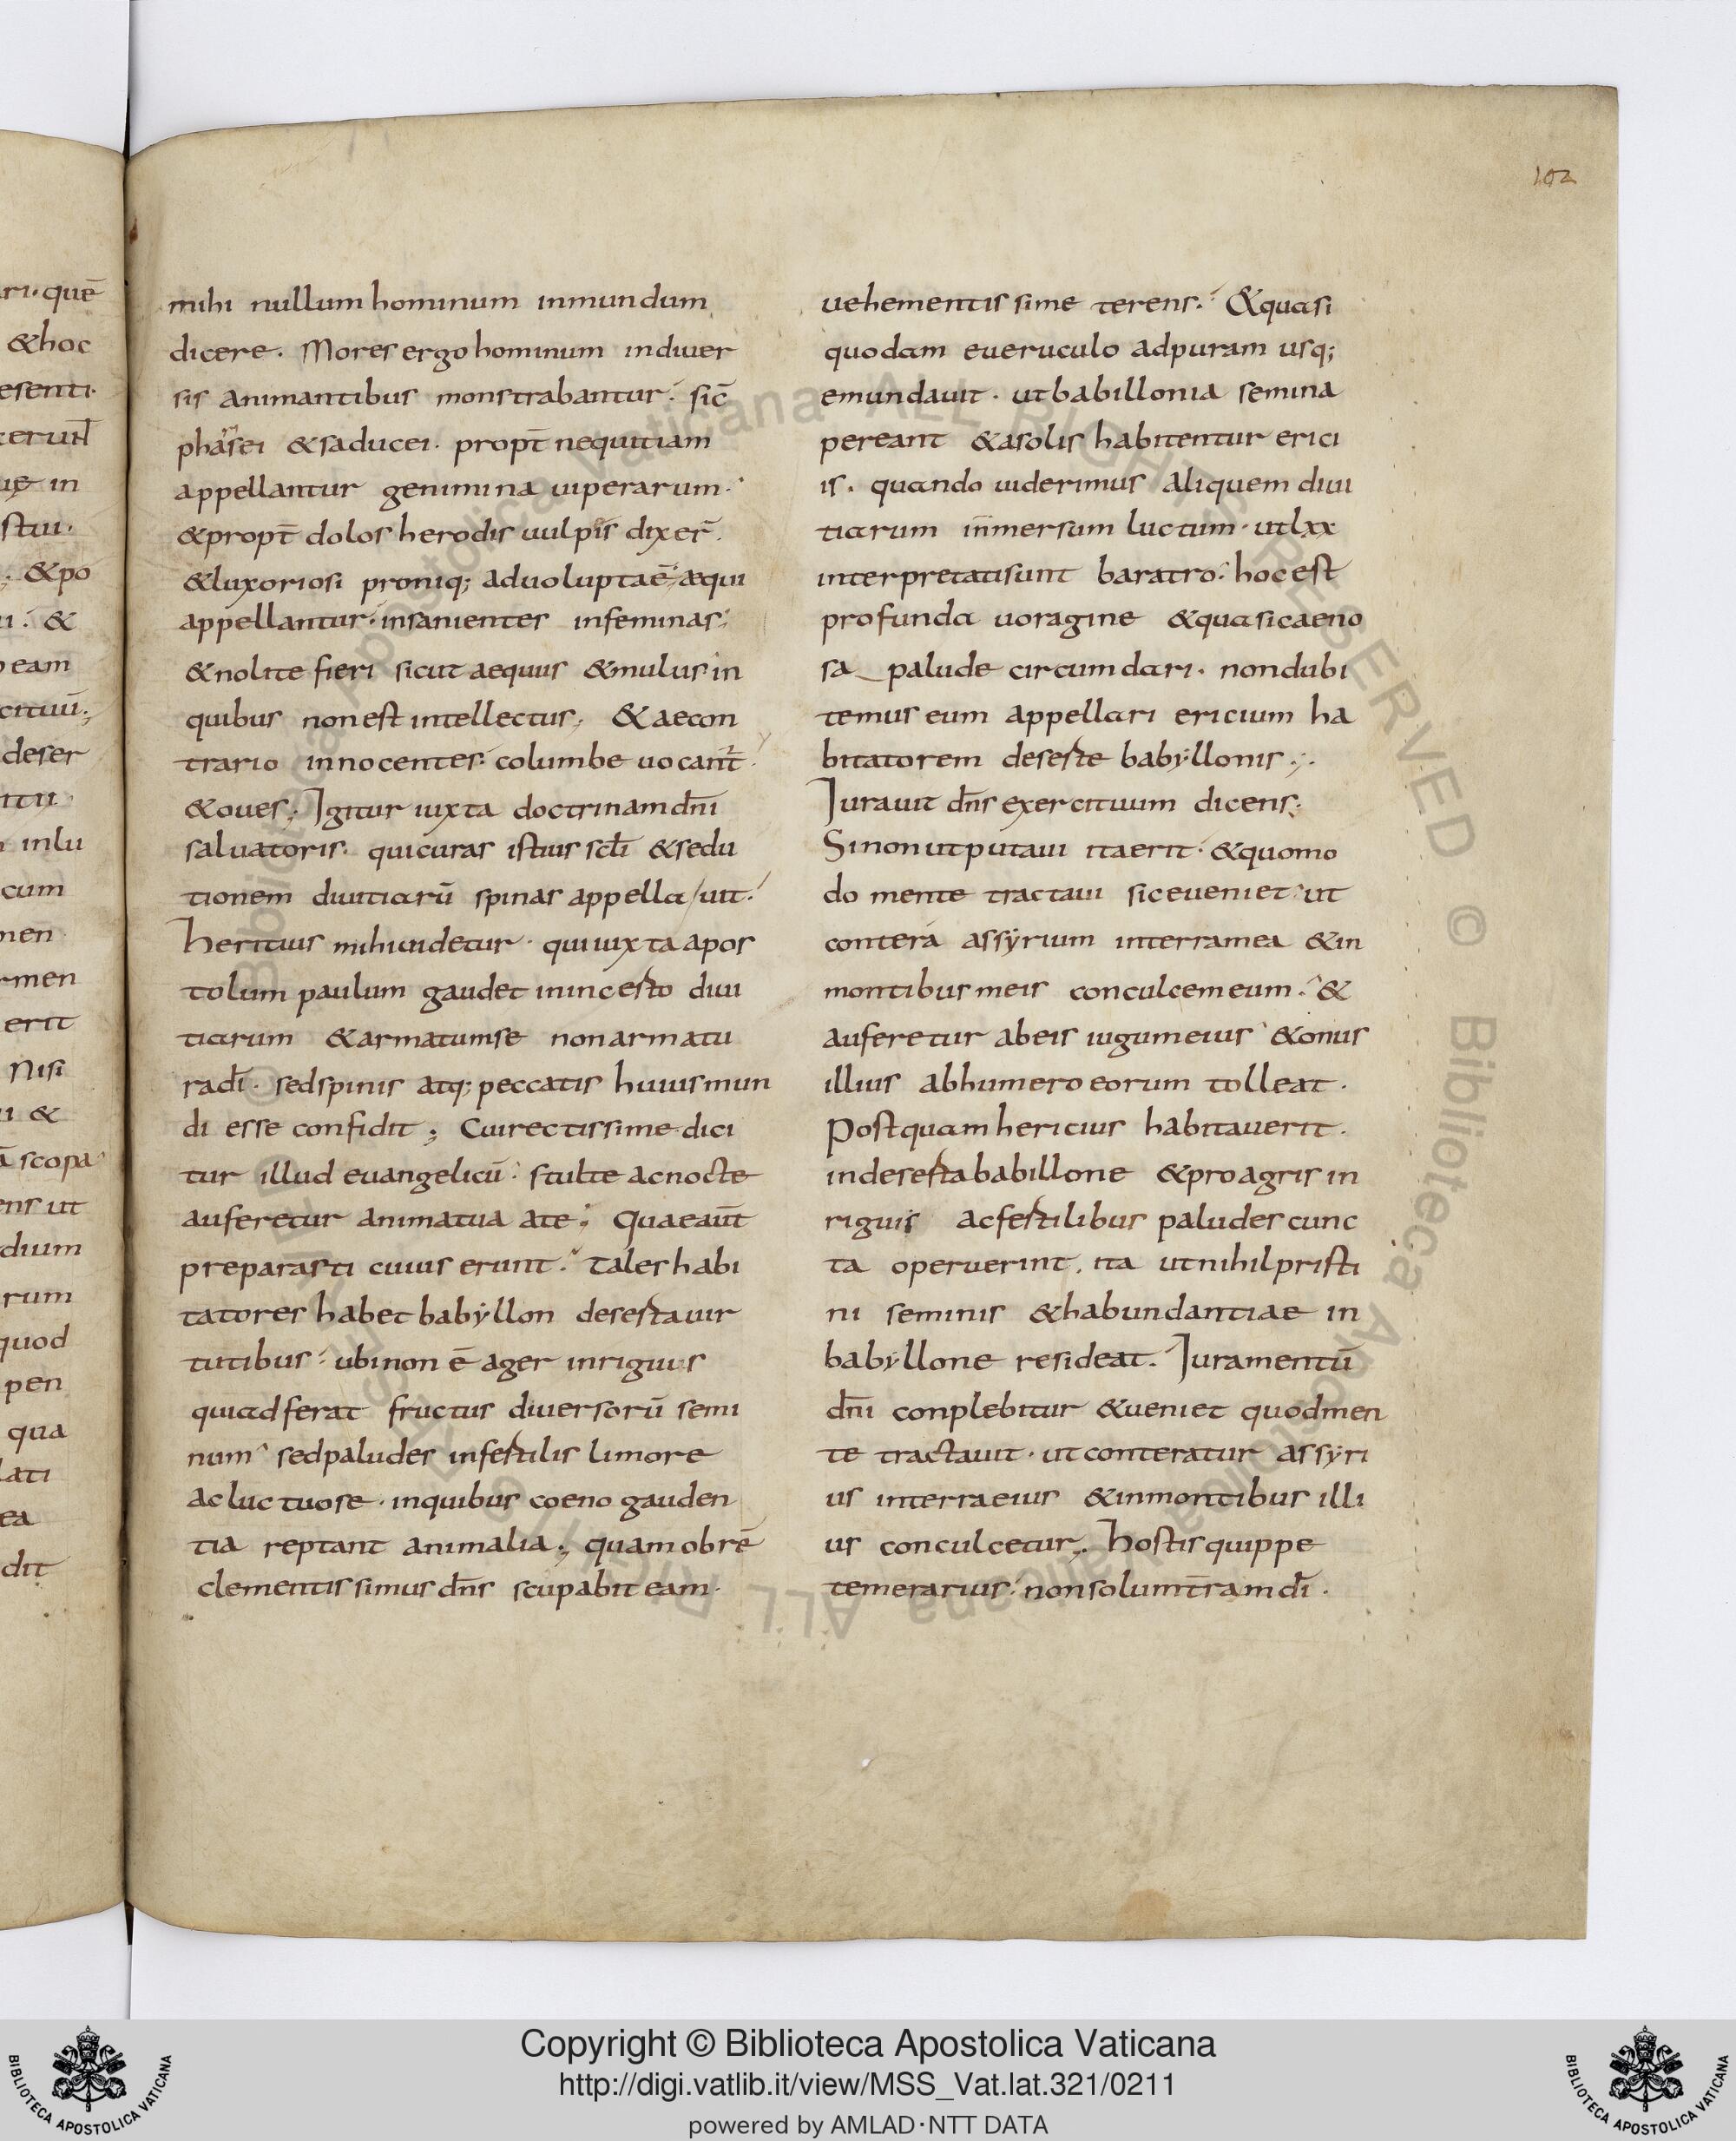 102
ri. quē
& hoc
esenti.
ue in
stui.
. & po
ui. &
eam
deser
inlu
cum
men
rmen
erit
Nisi
ui &
ā scopa
ens ut
dium
rum
quod
pen
qua
lati
ea
dit
mihi nullum hominum inmundum
dicere. Mores ergo hominum indiuer
sis animantibus monstrabantur. sic̄
pharisei & saducei. propt̄ nequitiam
appellantur genimina uiperarum.
& propt̄ dolos herodis uulpis dixer̄.
& luxoriosi proniq; aduoluptaē aequi
appellantur. insanientes infeminas;
& nolite fieri sicut aequus & mulus in
quibus non est intellectus; & aecon
trario innocentes. columbe uocant̄.
& oues; Igitur iuxta doctrinam dn̄i
saluatoris. qui curas istius scl̄i & sedu
tionem diuitiarū spinas appella/uit.
herituus mihi uidetur. qui iuxta apos
tolum paulum gaudet inincesto diui
tiarum & armatum se non armatu
radī. sed spinis atq; peccatis huius mun
di esse confidit; Cui rectissime dici
tur illud euangelicū. stulte ac nocte
auferetur anima tua a te; Quae aut̄
preparasti cuius erunt. Tales habi
tatores habet babyllon deserta uir
tutibus. ubi non ē ager inriguus
qui adferat fructus diuersorū semi
num sed paludes infertilis limore
ac luctuose. in quibus coeno gauden
tia reptant animalia; quam obrē
clementissimus dn̄s scupabit eam.
uehementissime terens. & quasi
quodam eueruculo ad puram usq;
emundauit. ut babillonia semina
pereant & a solis habitentur erici
is. quando uiderimus aliquem diui
tiarum inmersum luctum. ut lxx
interpretati sunt baratro. hoc est
profunda uoragine & quasi caeno
sa palude circumdari. non dubi
temus eum appellari ericium ha
bitatorem deserte babyllonis;.
Iurauit dn̄s exercituum dicens;
Si non ut putaui ita erit. & quomo
do mente tractaui sic eueniet. ut
contera assyrium in terra mea & in
montibus meis conculcem eum. &
auferetur ab eis iugum eius & onus
illius ab humero eorum tolleat.
Postquam hericius habitauerit.
in deserta babillone & pro agris in
riguis ac fertilibus paludes cunc
ta operuerint. ita ut nihil pristi
ni seminis & habundantiae in
babyllone resideat. Iuramentū
dn̄i conplebitur & ueniet quod men
te tractauit. ut conteratur assyri
us in terra eius & in montibus illi
us conculcetur. hostis quippe
temerarius. non solum t̄ram dī.
© Biblioteca Apostolica Vaticana ALL RIGHTS RESERVED © Biblioteca Apostolica Vaticana ALL RIGHTS RESERVED
Copyright © Biblioteca Apostolica Vaticana
http://digi.vatlib.it/view/MSS_Vat.lat.321/0211
powered by AMLAD·NTT DATA
BIBLIOTECA APOSTOLICA VATICANA
BIBLIOTECA APOSTOLICA VATICANA